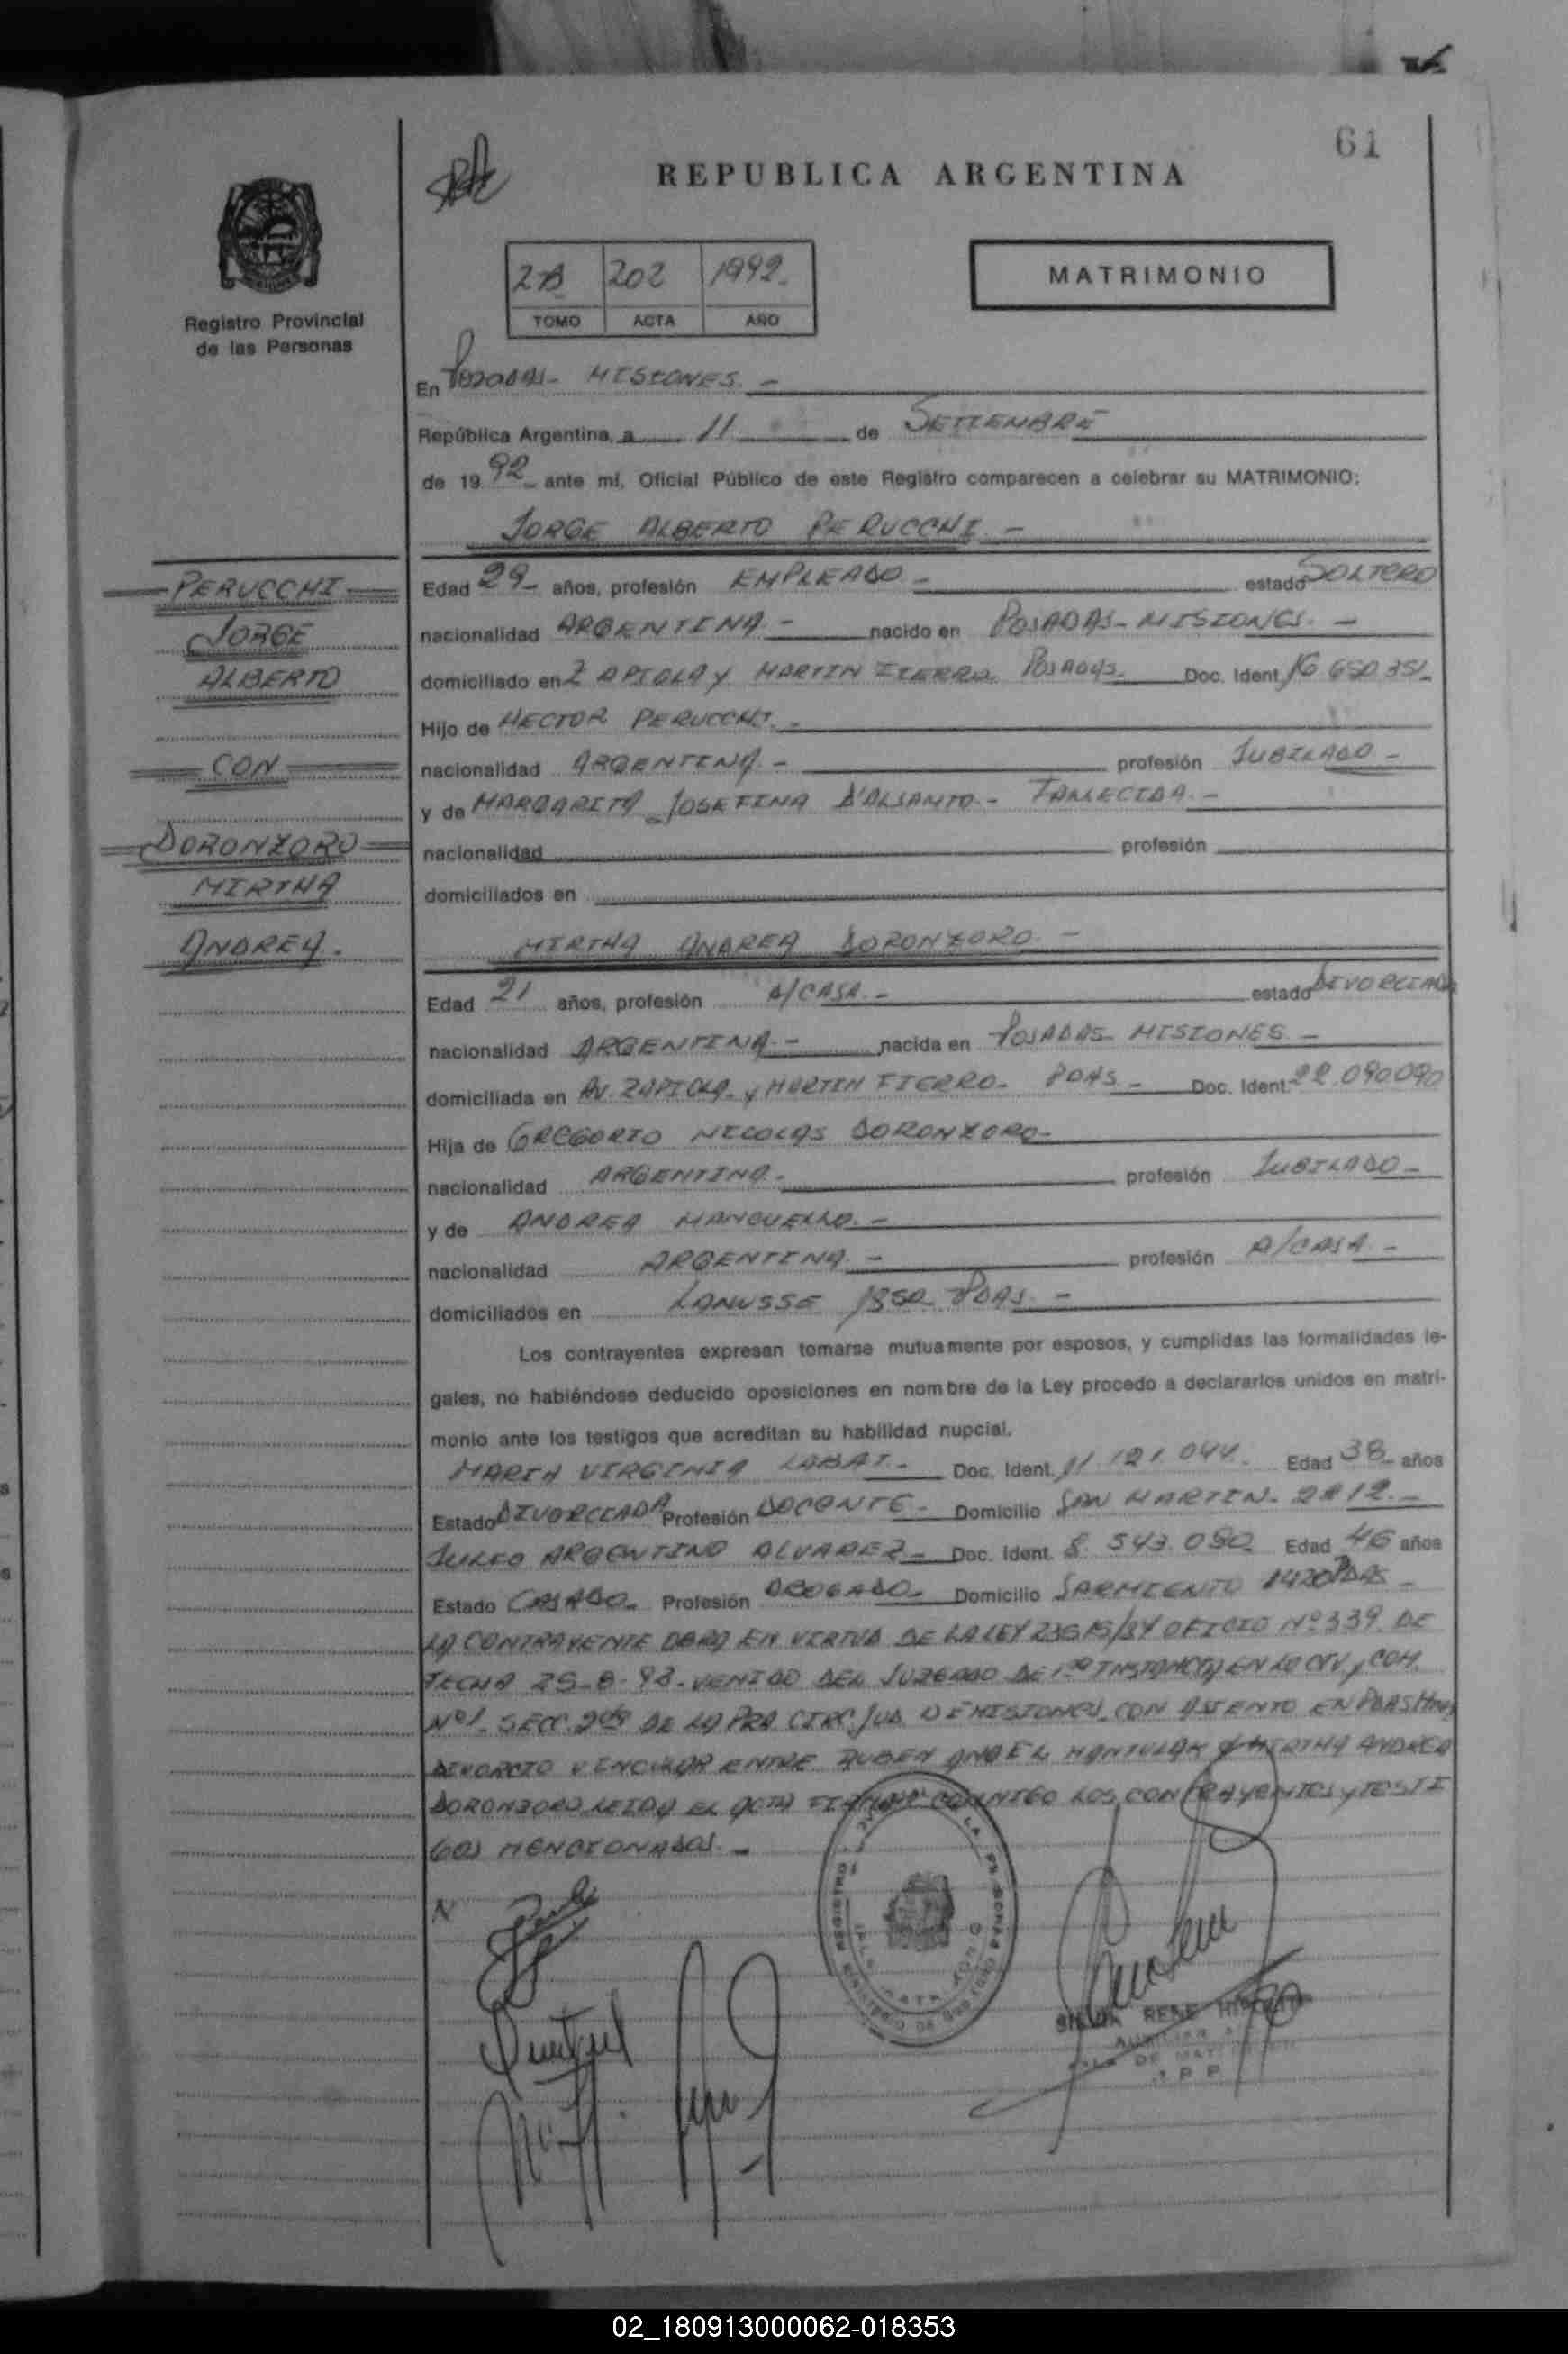 61
REPUBLICA ARGENTINA
Registro Provincial
de las Personas
2B 202 1992.-
TOMO ACTA AÑO
MATRIMONIO
En POSADAS- MISIONES.-
República Argentina, a 11 de SETIEMBRE
de 1992- ante mí, Oficial Público de este Registro comparecen a celebrar su MATRIMONIO:
JORGE ALBERTO PERUCCHI.-
PERUCCHI
JORGE
ALBERTO
CON
DORONZORO
MIRTHA
ANDREA.
Edad 29- años, profesión EMPLEADO.- estado SOLTERO
nacionalidad ARGENTINA.- nacido en POSADAS- MISIONES.-
domiciliado en ZAPIOLA y MARTIN FIERRO. POSADAS.- Doc. Ident. 16 650 351-
Hijo de HECTOR PERUCCHI.-
nacionalidad ARGENTINA.- profesión JUBILADO-
y de MARGARITA JOSEFINA D'ALSANTO.- FALLECIDA.-
nacionalidad profesión
domiciliados en
MIRTHA ANDREA DORONZORO.-
Edad 21 años, profesión A/CASA.- estado DIVORCIADA
nacionalidad ARGENTINA.- nacida en POSADAS- MISIONES-
domiciliada en AV. ZAPIOLA y MARTIN FIERRO- PDAS- Doc. Ident. 22.090090
Hija de GREGORIO NICOLAS DORONZORO-
nacionalidad ARGENTINA- profesión JUBILADO-
y de ANDREA MANCUELLO.-
nacionalidad ARGENTINA.- profesión A/CASA.-
domiciliados en LANUSSE PDAS.-
Los contrayentes expresan tomarse mutuamente por esposos, y cumplidas las formalidades le-
gales, no habiéndose deducido oposiciones en nombre de la Ley procedo a declararlos unidos en matri-
monio ante los testigos que acreditan su habilidad nupcial.
MARIA VIRGINIA LABAT.- Doc. Ident. 11.121.044. Edad 38- años
Estado DIVORCIADA Profesión DOCENTE- Domicilio SAN MARTIN-
JULIO ARGENTINO ALVAREZ- Doc. Ident. 8.543.080 Edad 46 años
Estado CASADO- Profesión ABOGADO- Domicilio SARMIENTO 1420 PDAS-
LA CONTRAYENTE OBRA EN VIRTUD DE LA LEY 23515/ OFICIO Nº 339. DE
FECHA VENIDO DEL JUZGADO DE 1ra INSTANCIA EN LO CIV. y COM.
Nº1- SECC. 2da DE LA PRA CIRC. JUD. DE MISIONES. CON ASIENTO EN PDAS
DIVORCIO VINCULAR ENTRE RUBEN ANGEL Y MIRTHA ANDREA
DORONZORO LEIDA EL ACTA FIRMAN CONMIGO LOS CONTRAYENTES y TESTI
GOS MENCIONADOS.-
RENE
02_180913000062-018353